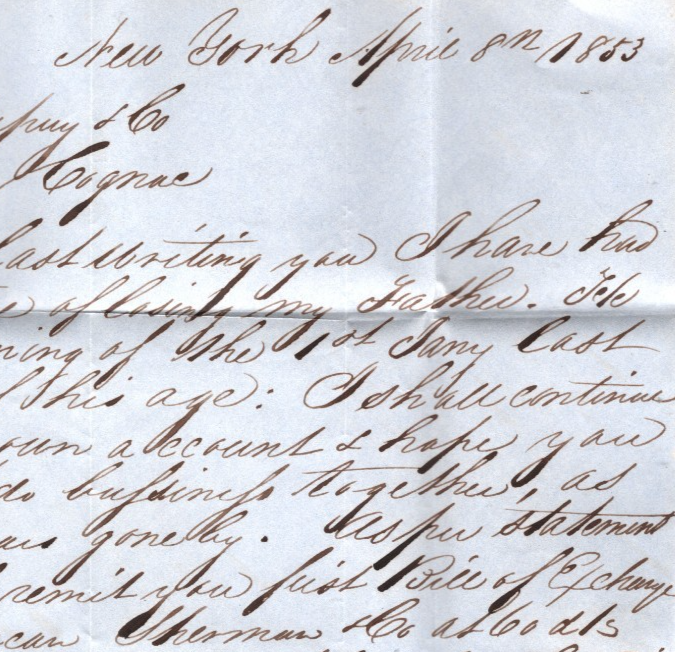 New York April 8th 1853
& Co
Cognac
last writing you I have had
of losing my Father. He
of the 1st Jany last
his age: I shall continue
own account & hope you
do bussiness together, as
gone by. As per statement
remit you first Bill of Exchange
Sherman & Co at 60 d/s